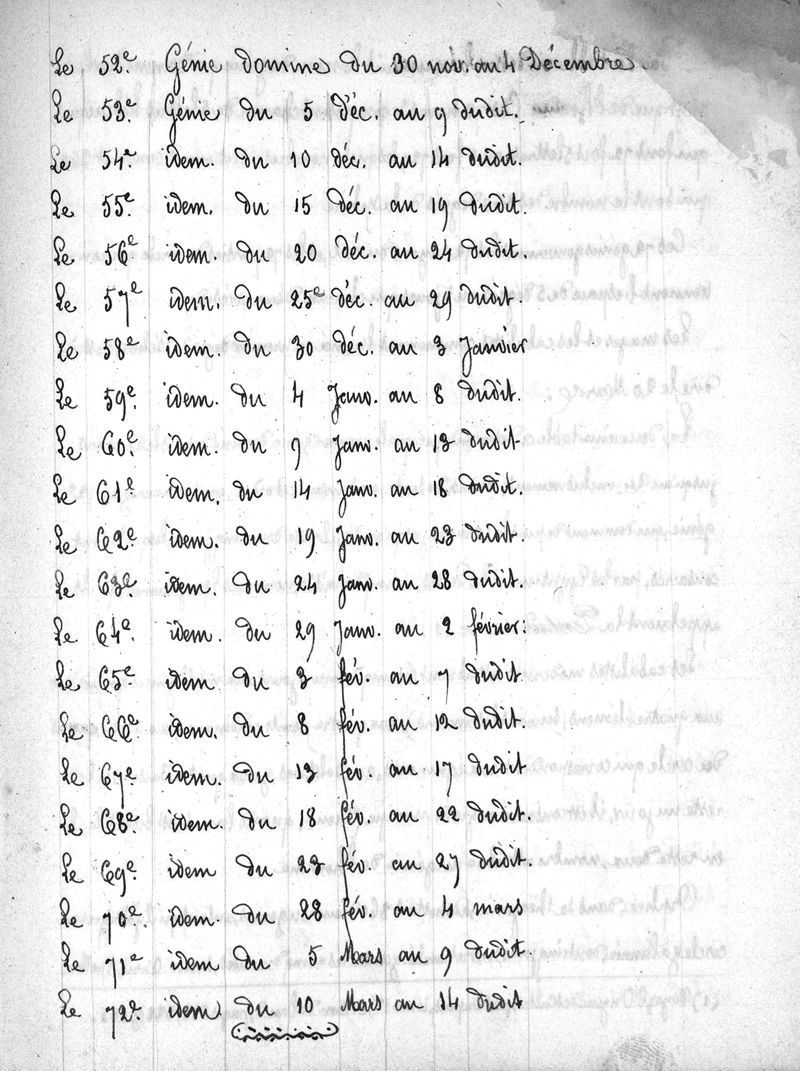 Le 52e Génie domine du 30 nov. au 4 Décembre.
Le 53e Génie du 5 déc. au 9 dudit.
Le 54e idem. du 10 déc. au 14 dudit.
Le 55e idem. du 15 déc. au 19 dudit.
Le 56e idem. du 20 déc. au 24 dudit.
Le 57e idem. du 25e déc. au 29 dudit.
Le 58e idem. du 30 déc. au 3 Janvier
Le 59e idem. du 4 Janv. au 8 dudit.
Le 60e idem. du 9 Janv. au 13 dudit
Le 61e idem. du 14 Janv. au 18 dudit.
Le 62e idem. du 19 Janv. au 23 dudit.
Le 63e idem. du 24 Janv. au 28 dudit.
Le 64e idem. du 29 Janv. au 2 février.
Le 65e idem du 3 fév. au 7 dudit
Le 66e idem. du 8 fév. au 12 dudit.
Le 67e idem. du 13 fév. au 17 dudit
Le 68e idem. du 18 fév. au 22 dudit.
Le 69e idem du 23 fév. au 27 dudit.
Le 70e idem. du 28 fév. au 4 mars
Le 71e idem du 5 Mars au 9 dudit.
Le 72e idem. du 10 Mars au 14 dudit